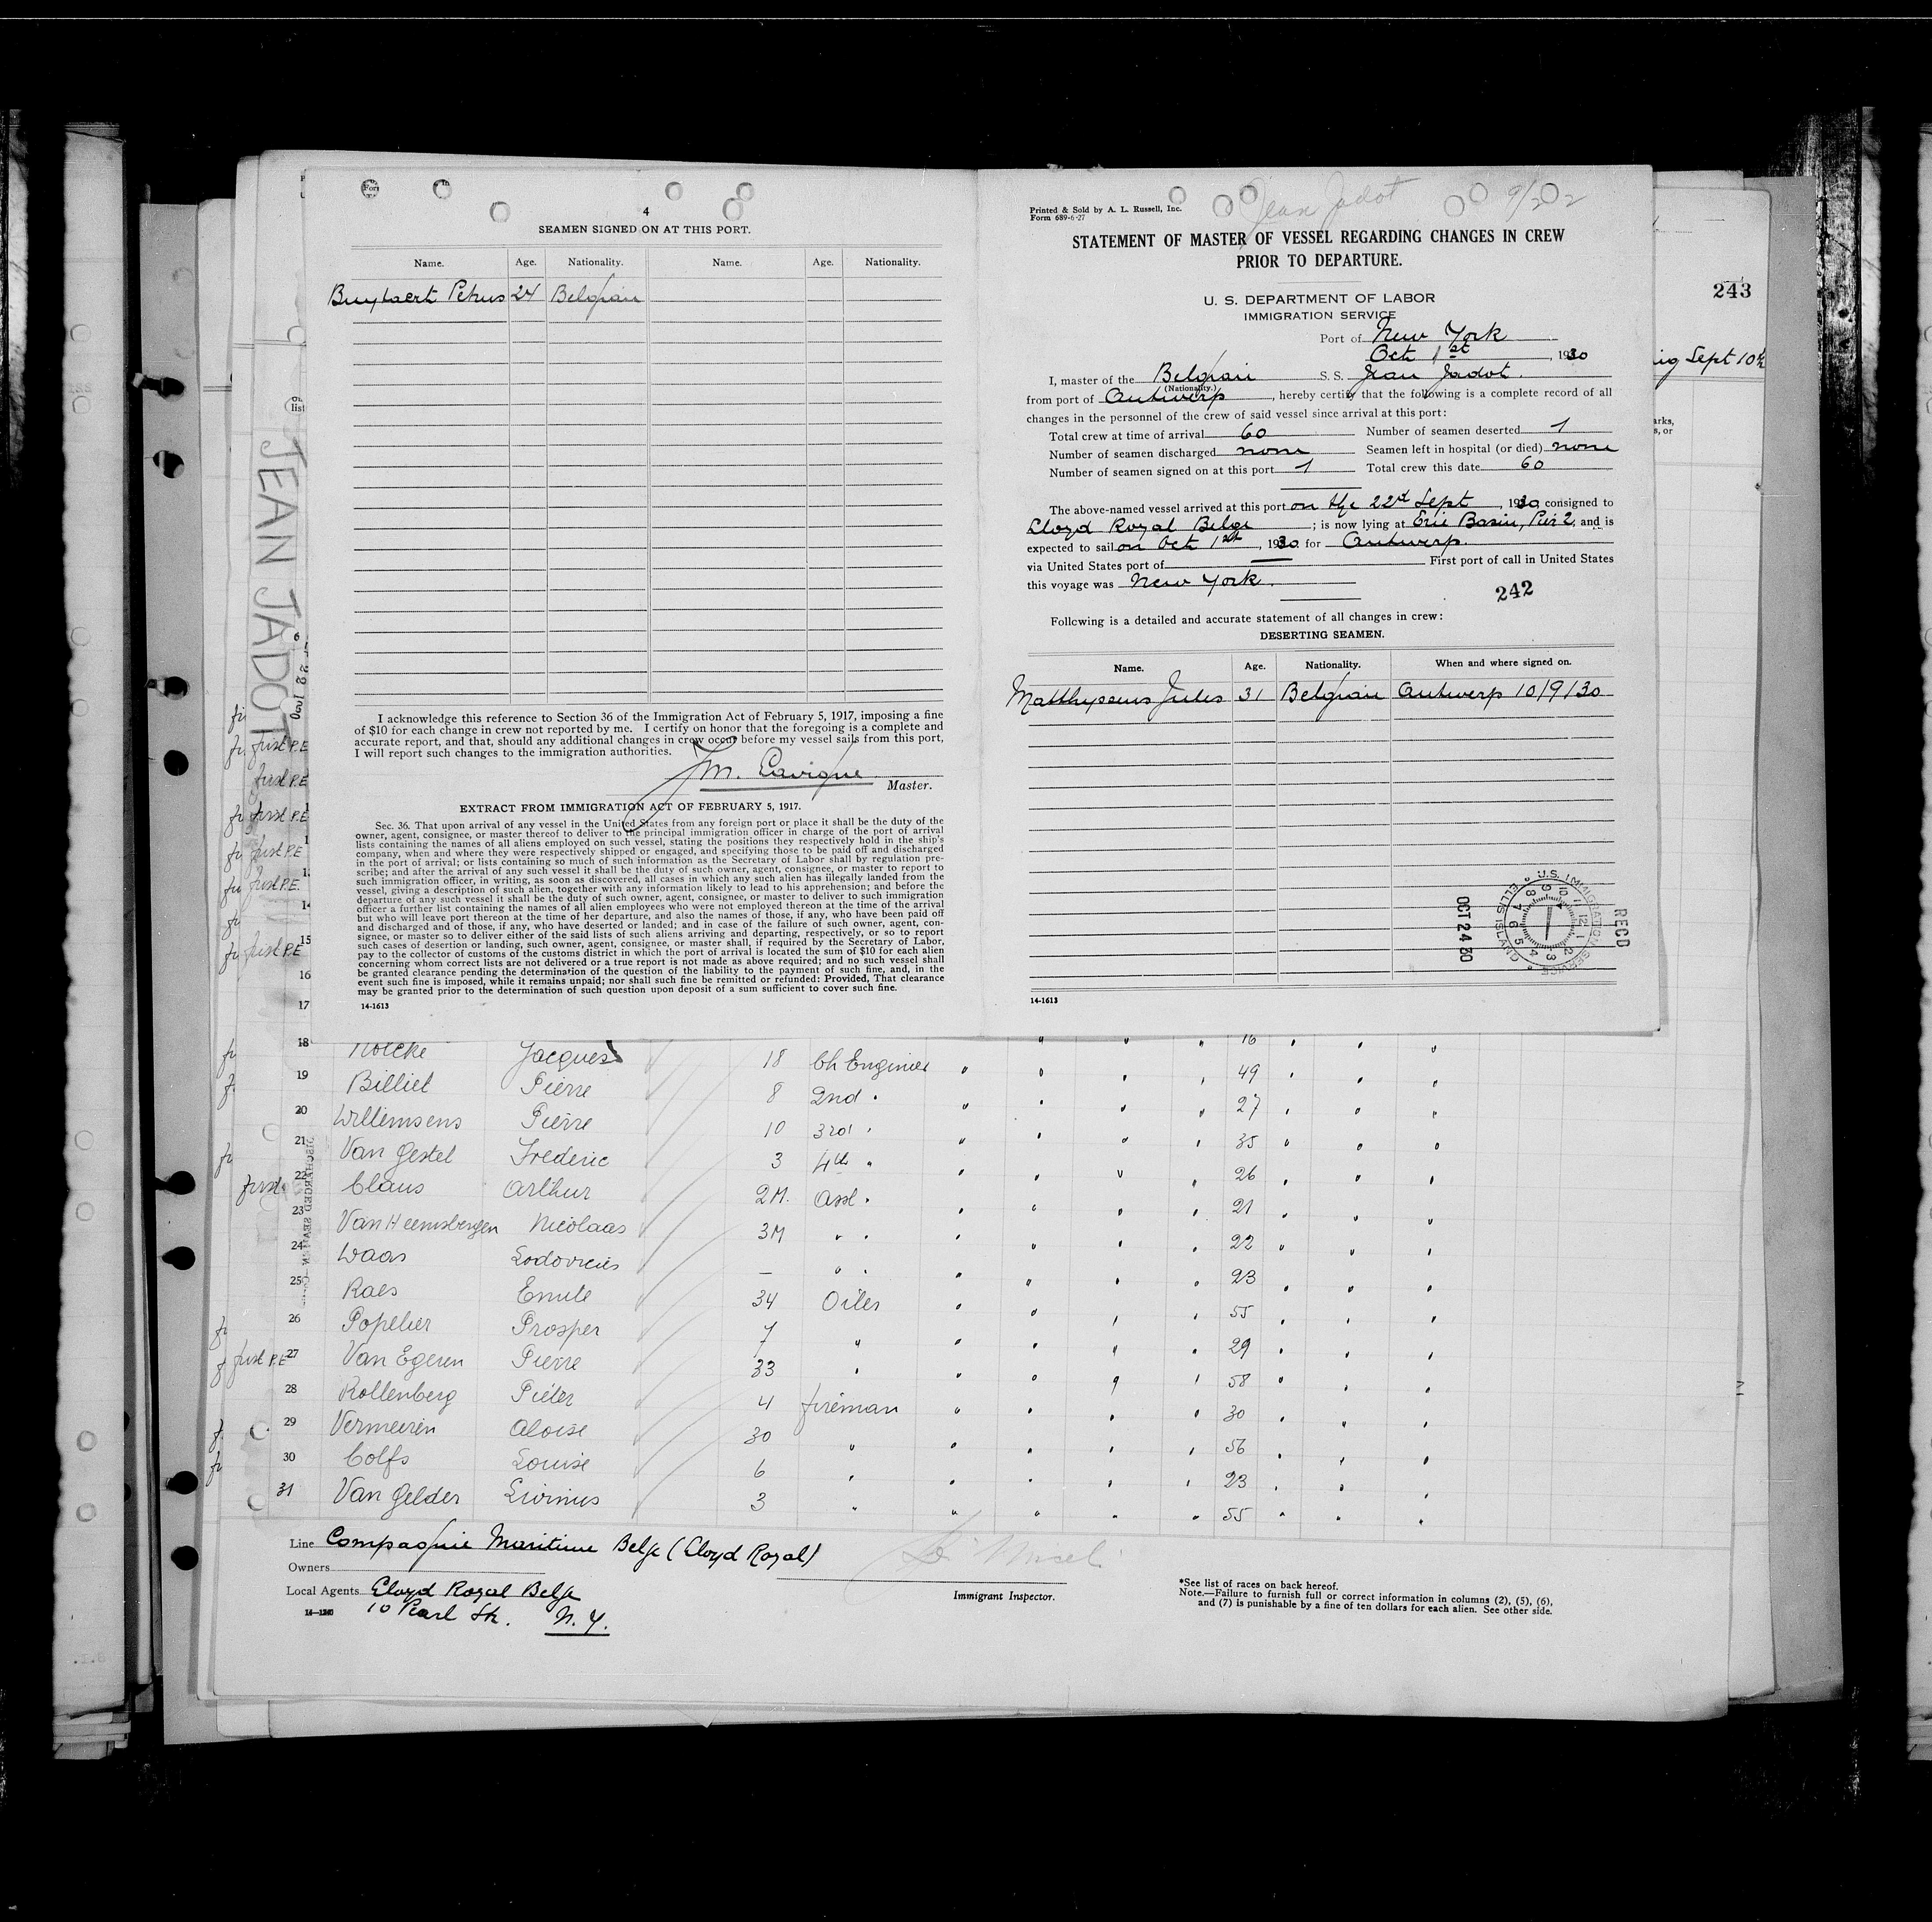 4
SEAMEN SIGNED ON AT THIS PORT.
Name. Age. Nationality. Name. Age. Nationality.
Buytaert Petrus 24 Belgian
I acknowledge this reference to Section 36 of the Immigration Act of February 5, 1917, imposing a fine
of $10 for each change in crew not reported by me. I certify on honor that the foregoing is a complete and
accurate report, and that, should any additional changes in crew occur before my vessel sails from this port,
I will report such changes to the immigration authorities.
Jm. Lavigne
Master.
EXTRACT FROM IMMIGRATION ACT OF FEBRUARY 5, 1917.
Sec. 36. That upon arrival of any vessel in the United States from any foreign port or place it shall be the duty of the
owner, agent, consignee, or master thereof to deliver to the principal immigration officer in charge of the port of arrival
lists containing the names of all aliens employed on such vessel, stating the positions they respectively hold in the ship's
company, when and where they were respectively shipped or engaged, and specifying those to be paid off and discharged
in the port of arrival; or lists containing so much of such information as the Secretary of Labor shall by regulation pre-
scribe; and after the arrival of any such vessel it shall be the duty of such owner, agent, consignee, or master to report to
such immigration officer, in writing, as soon as discovered, all cases in which any such alien has illegally landed from the
vessel, giving a description of such alien, together with any information likely to lead to his apprehension; and before the
departure of any such vessel it shall be the duty of such owner, agent, consignee, or master to deliver to such immigration
officer a further list containing the names of all alien employees who were not employed thereon at the time of the arrival
but who will leave port thereon at the time of her departure, and also the names of those, if any, who have been paid off
and discharged and of those, if any, who have deserted or landed; and in case of the failure of such owner, agent, con-
signee, or master so to deliver either of the said lists of such aliens arriving and departing, respectively, or so to report
such cases of desertion or landing, such owner, agent, consignee, or master shall, if required by the Secretary of Labor,
pay to the collector of customs of the customs district in which the port of arrival is located the sum of $10 for each alien
concerning whom correct lists are not delivered or a true report is not made as above required; and no such vessel shall
be granted clearance pending the determination of the question of the liability to the payment of such fine, and, in the
event such fine is imposed, while it remains unpaid; nor shall such fine be remitted or refunded: Provided, That clearance
may be granted prior to the determination of such question upon deposit of a sum sufficient to cover such fine.
14-1613
Jean Jadot 9/22
Printed & Sold by A. L. Russell, Inc.
Form 689-6-27
STATEMENT OF MASTER OF VESSEL REGARDING CHANGES IN CREW
PRIOR TO DEPARTURE.
U. S. DEPARTMENT OF LABOR
IMMIGRATION SERVICE
Port of New York
Oct 1st, 1930
I, master of the Belgian S. S. Jean Jadot.
(Nationality.)
from port of Antwerp, hereby certify that the following is a complete record of all
changes in the personnel of the crew of said vessel since arrival at this port:
Total crew at time of arrival 60 Number of seamen deserted 1
Number of seamen discharged none Seamen left in hospital (or died) none
Number of seamen signed on at this port 1 Total crew this date 60
The above-named vessel arrived at this port on the 22d Sept, 1930, consigned to
Lloyd Royal Belge; is now lying at Erie Basin, Pier 2, and is
expected to sail on Oct 1st, 1930. for Antwerp.
via United States port of — First port of call in United States
this voyage was New York.
242
Following is a detailed and accurate statement of all changes in crew:
DESERTING SEAMEN.
Name. Age. Nationality. When and where signed on.
Matthyssens Jules 31 Belgian Antwerp 10/9/30
RECD
U.S. IMMIGRATION SERVICE ELLIS ISLAND
OCT 24 30
14-1613
243
ing Sept 10th
JEAN JADOT
15
16
17
18 Jacques 18 Ch Engineer 16
19 Billiet Pierre 8 2nd " 49
20 Willemsens Pierre 10 3rd " 27
21 Van Gestel Frederic 3 4th " 35
22 Claus Arthur 2M. Asst " 26
23 Van Heemsbergen Nicolaas 3M " " 21
24 Waas Lodovicus — " " 22
25 Raes Emile 34 Oiler 23
26 Popelier Prosper 7 " 55
27 Van Egeren Pierre 33 " 29
28 Rollenberg Pieter 4 fireman 58
29 Vermeeren Aloise 30 " 30
30 Colfs Louise 6 " 56
31 Van Gelder Livinus 3 " 23
55
Line Compagnie Maritime Belge (Lloyd Royal)
Owners
Local Agents Lloyd Royal Belge
10 Pearl Str. N. Y.
14-1240
Immigrant Inspector.
*See list of races on back hereof.
Note.—Failure to furnish full or correct information in columns (2), (5), (6),
and (7) is punishable by a fine of ten dollars for each alien. See other side.